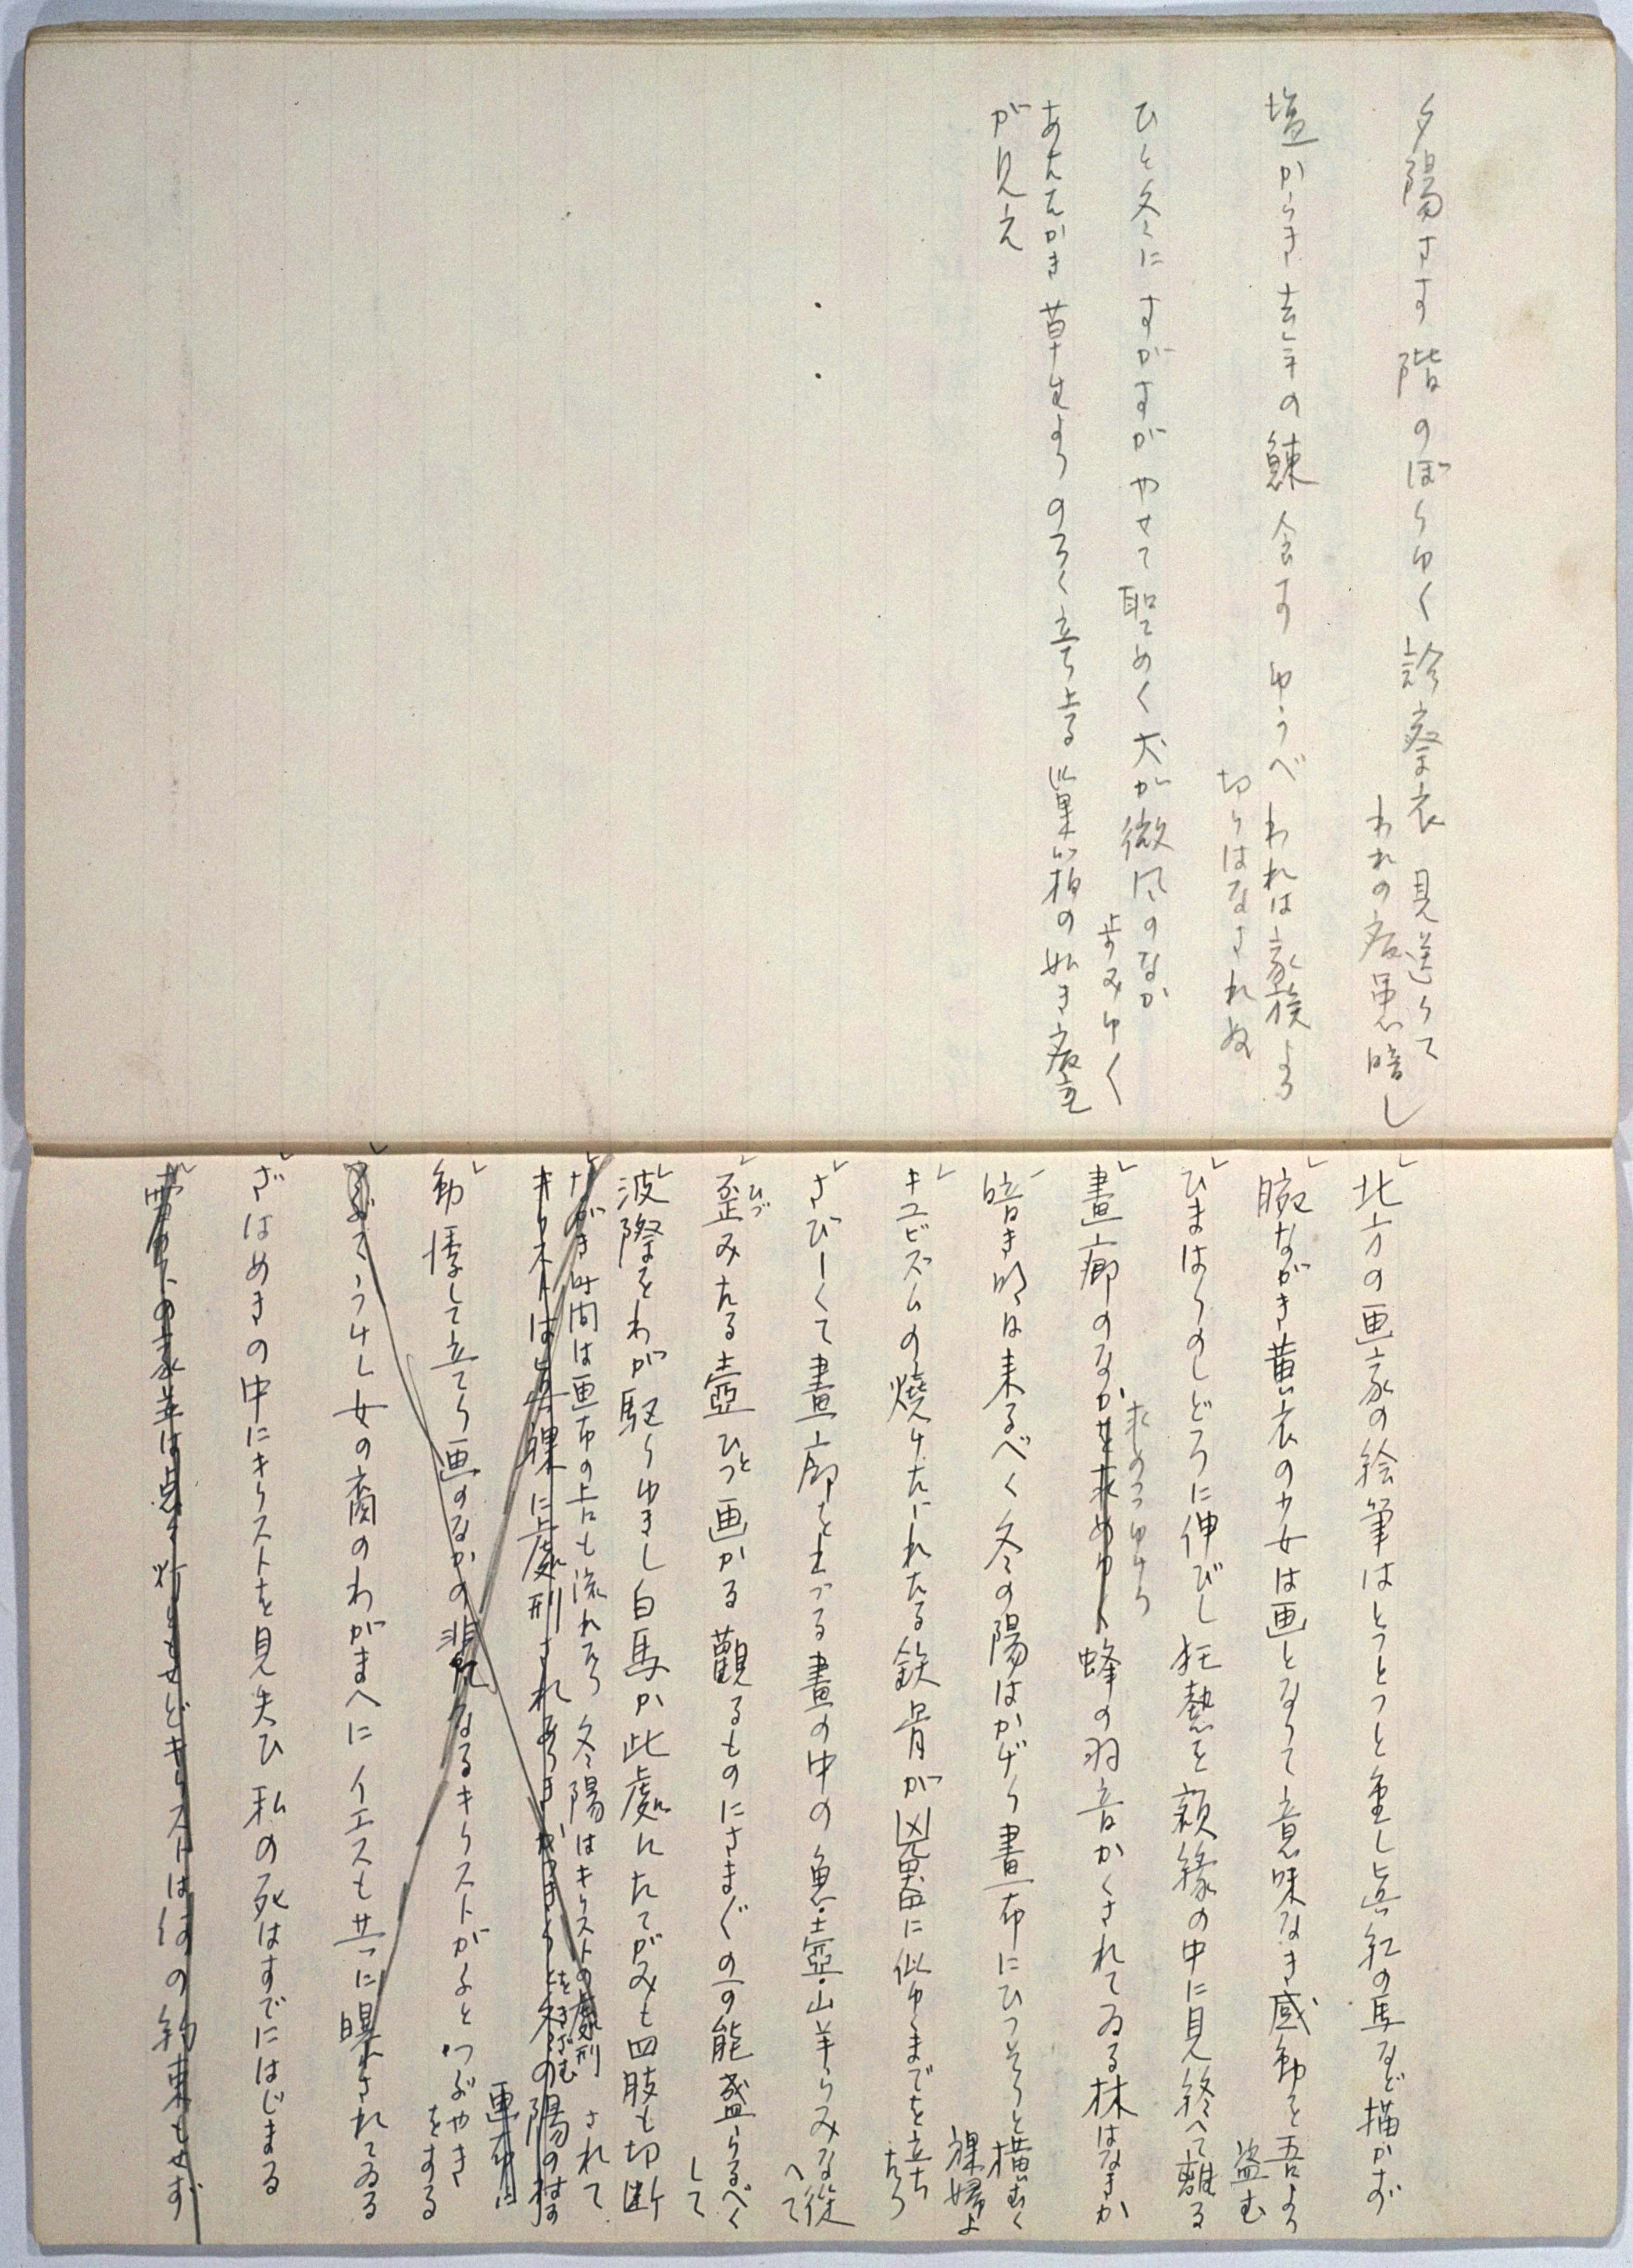 夕陽さす階のぼりゆく診察衣見送りて
われの病患暗し
塩からき去年の鰊食すゆうべわれは家族より
切りはなされぬ
ひと冬にすがすがやせて聖めく犬が微風のなか
歩みゆく
あたたかき草生よりのろく立ち上る巣箱の如き病室
が見え
・・
北方の画家の絵筆はとつとつと重し眞紅の馬など描かず
腕ながき黄衣の少女は画となりて意味なき感動を吾より
盗む
ひまはりのしどろに伸びし狂熱を額縁の中に見終へて離る
求めつつゆけり
畫廊のなかを求めゆく蜂の羽音かくされてゐる林はなきか
暗き時は来るべく冬の陽はかげり畫布にひつそりと横むく
裸婦よ
キュビズムの燒けたゞれたる鉄骨が凶器に似ゆるまでを立ち
たり
さびしくて畫廊を出づる畫の中の魚・壺・山羊らみな従
へて
歪みたる壺ひとつ画かる觀るものにさまざまの能盛らるべく
して
波際をわが駆りゆきし白馬か此處にたてがみも四肢も切断
されて
ながき時間は画布の上にも流れたり冬陽はキリストの處刑
キリストは裸に處刑され
をきざむ
冬の陽の射す
画布に
動悸して立てり画のなかの悲しげなるキリストがふとつぶやき
をする
うけし女の裔のわがまへにイエスも共に曝されてゐる
ざはめきの中にキリストを見失ひ私の死はすでにはじまる
の家並は点々灯ともせどキリストは何の約束もせず